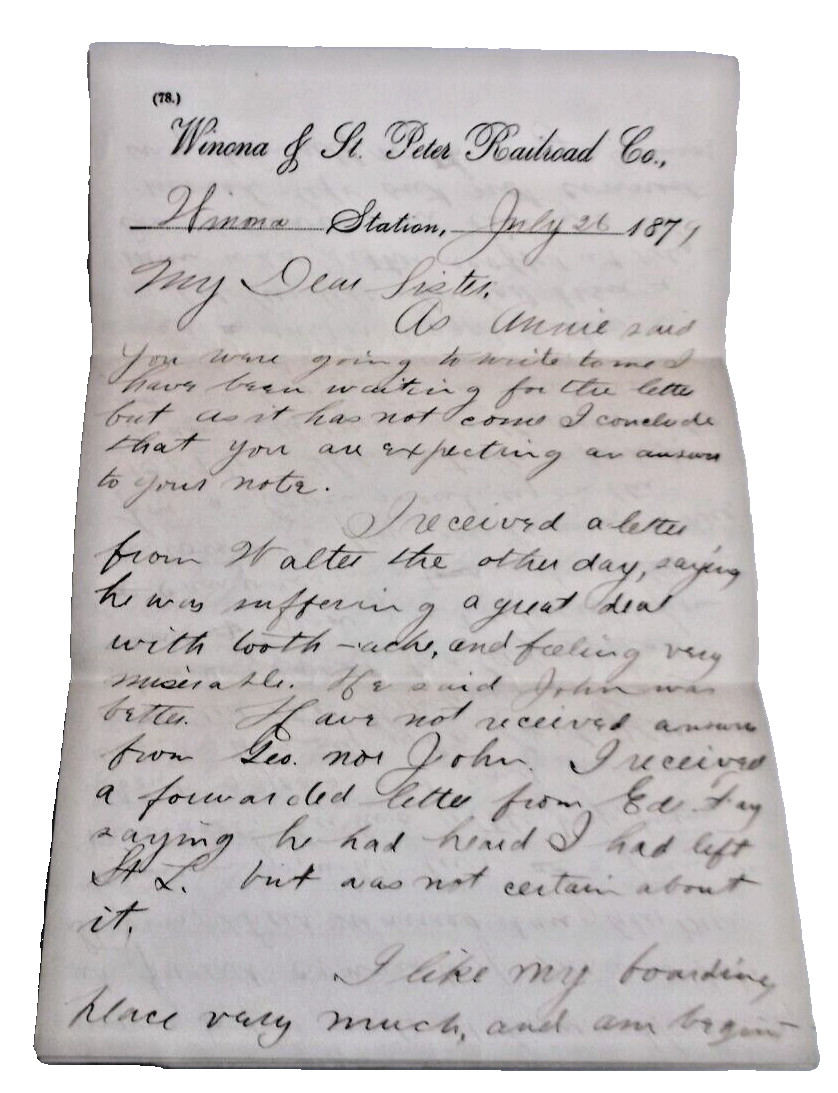 (78.)
Winona & St. Peter Railroad Co.,
Winona Station, July 26 1879
My Dear Sister,
As Annie said
you were going to write to me I
have been waiting for the letter
but as it has not come I conclude
that you are expecting an answer
to your note.
I received a letter
from Walter the other day, saying
he was suffering a great deal
with tooth-ache, and feeling very
miserable. He said John was
better. Have not received answer
from Geo. nor John. I received
a forwarded letter from Ed Fay
saying he had heard I had left
St L. but was not certain about
it.
I like my boarding
place very much, and am begin